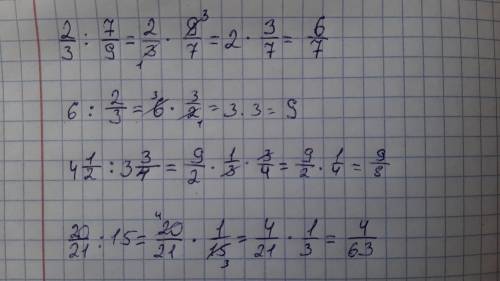 2/3 : 7/9 = 2/3̸₁ · 9̸³/7 = 2 · 3/7 = 6/7
6 : 2/3 = ³6̸ · 3/2̸₁ = 3 · 3 = 9
4 1/2 : 3 3/4 = 9/2 · 1/3̸ · 3̸/4 = 9/2 · 1/4 = 9/8
20/21 : 15 = ⁴2̸0̸/21 · 1/1̸5̸₃ = 4/21 · 1/3 = 4/63